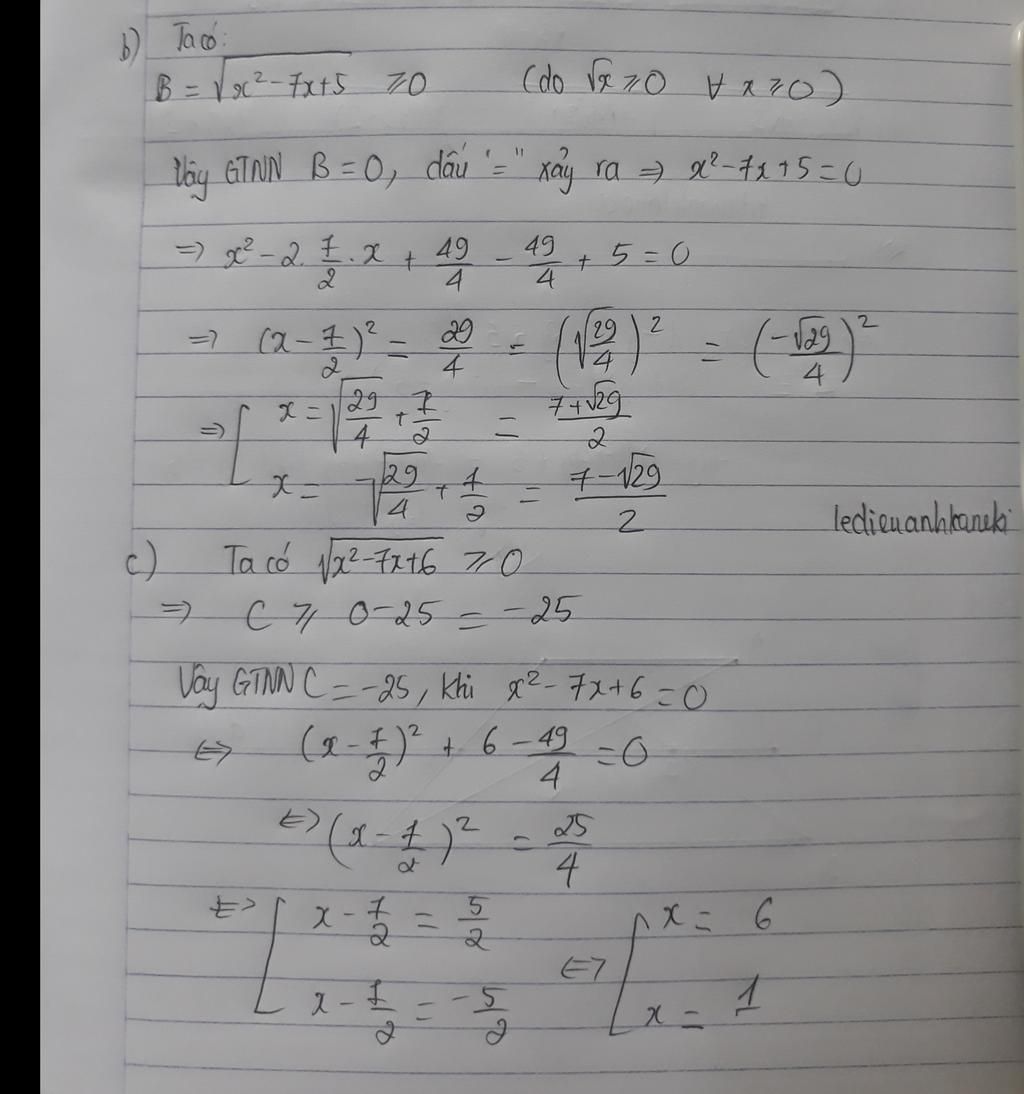 b) Ta có:
B = √(x² - 7x + 5) ⩾ 0 (do √x ⩾ 0 ∀ x ⩾ 0)
Vậy GTNN B = 0, dấu "=" xảy ra ⇒ x² - 7x + 5 = 0
⇒ x² - 2. 7/2 . x + 49/4 - 49/4 + 5 = 0
⇒ (x - 7/2)² = 29/4 = (√(29/4))² = (-√29/4)²
⇒ [ x = √(29/4) + 7/2 = (7+√29)/2
x = -√(29/4) + 7/2 = (7-√29)/2
ledieuanhkaneki
c) Ta có √(x² - 7x + 6) ⩾ 0
⇒ C ⩾ 0 - 25 = -25
Vậy GTNN C = -25, khi x² - 7x + 6 = 0
⇔ (x - 7/2)² + 6 - 49/4 = 0
⇔ (x - 7/2)² = 25/4
⇔ [ x - 7/2 = 5/2 ⇔ [ x = 6
x - 7/2 = -5/2 x = 1